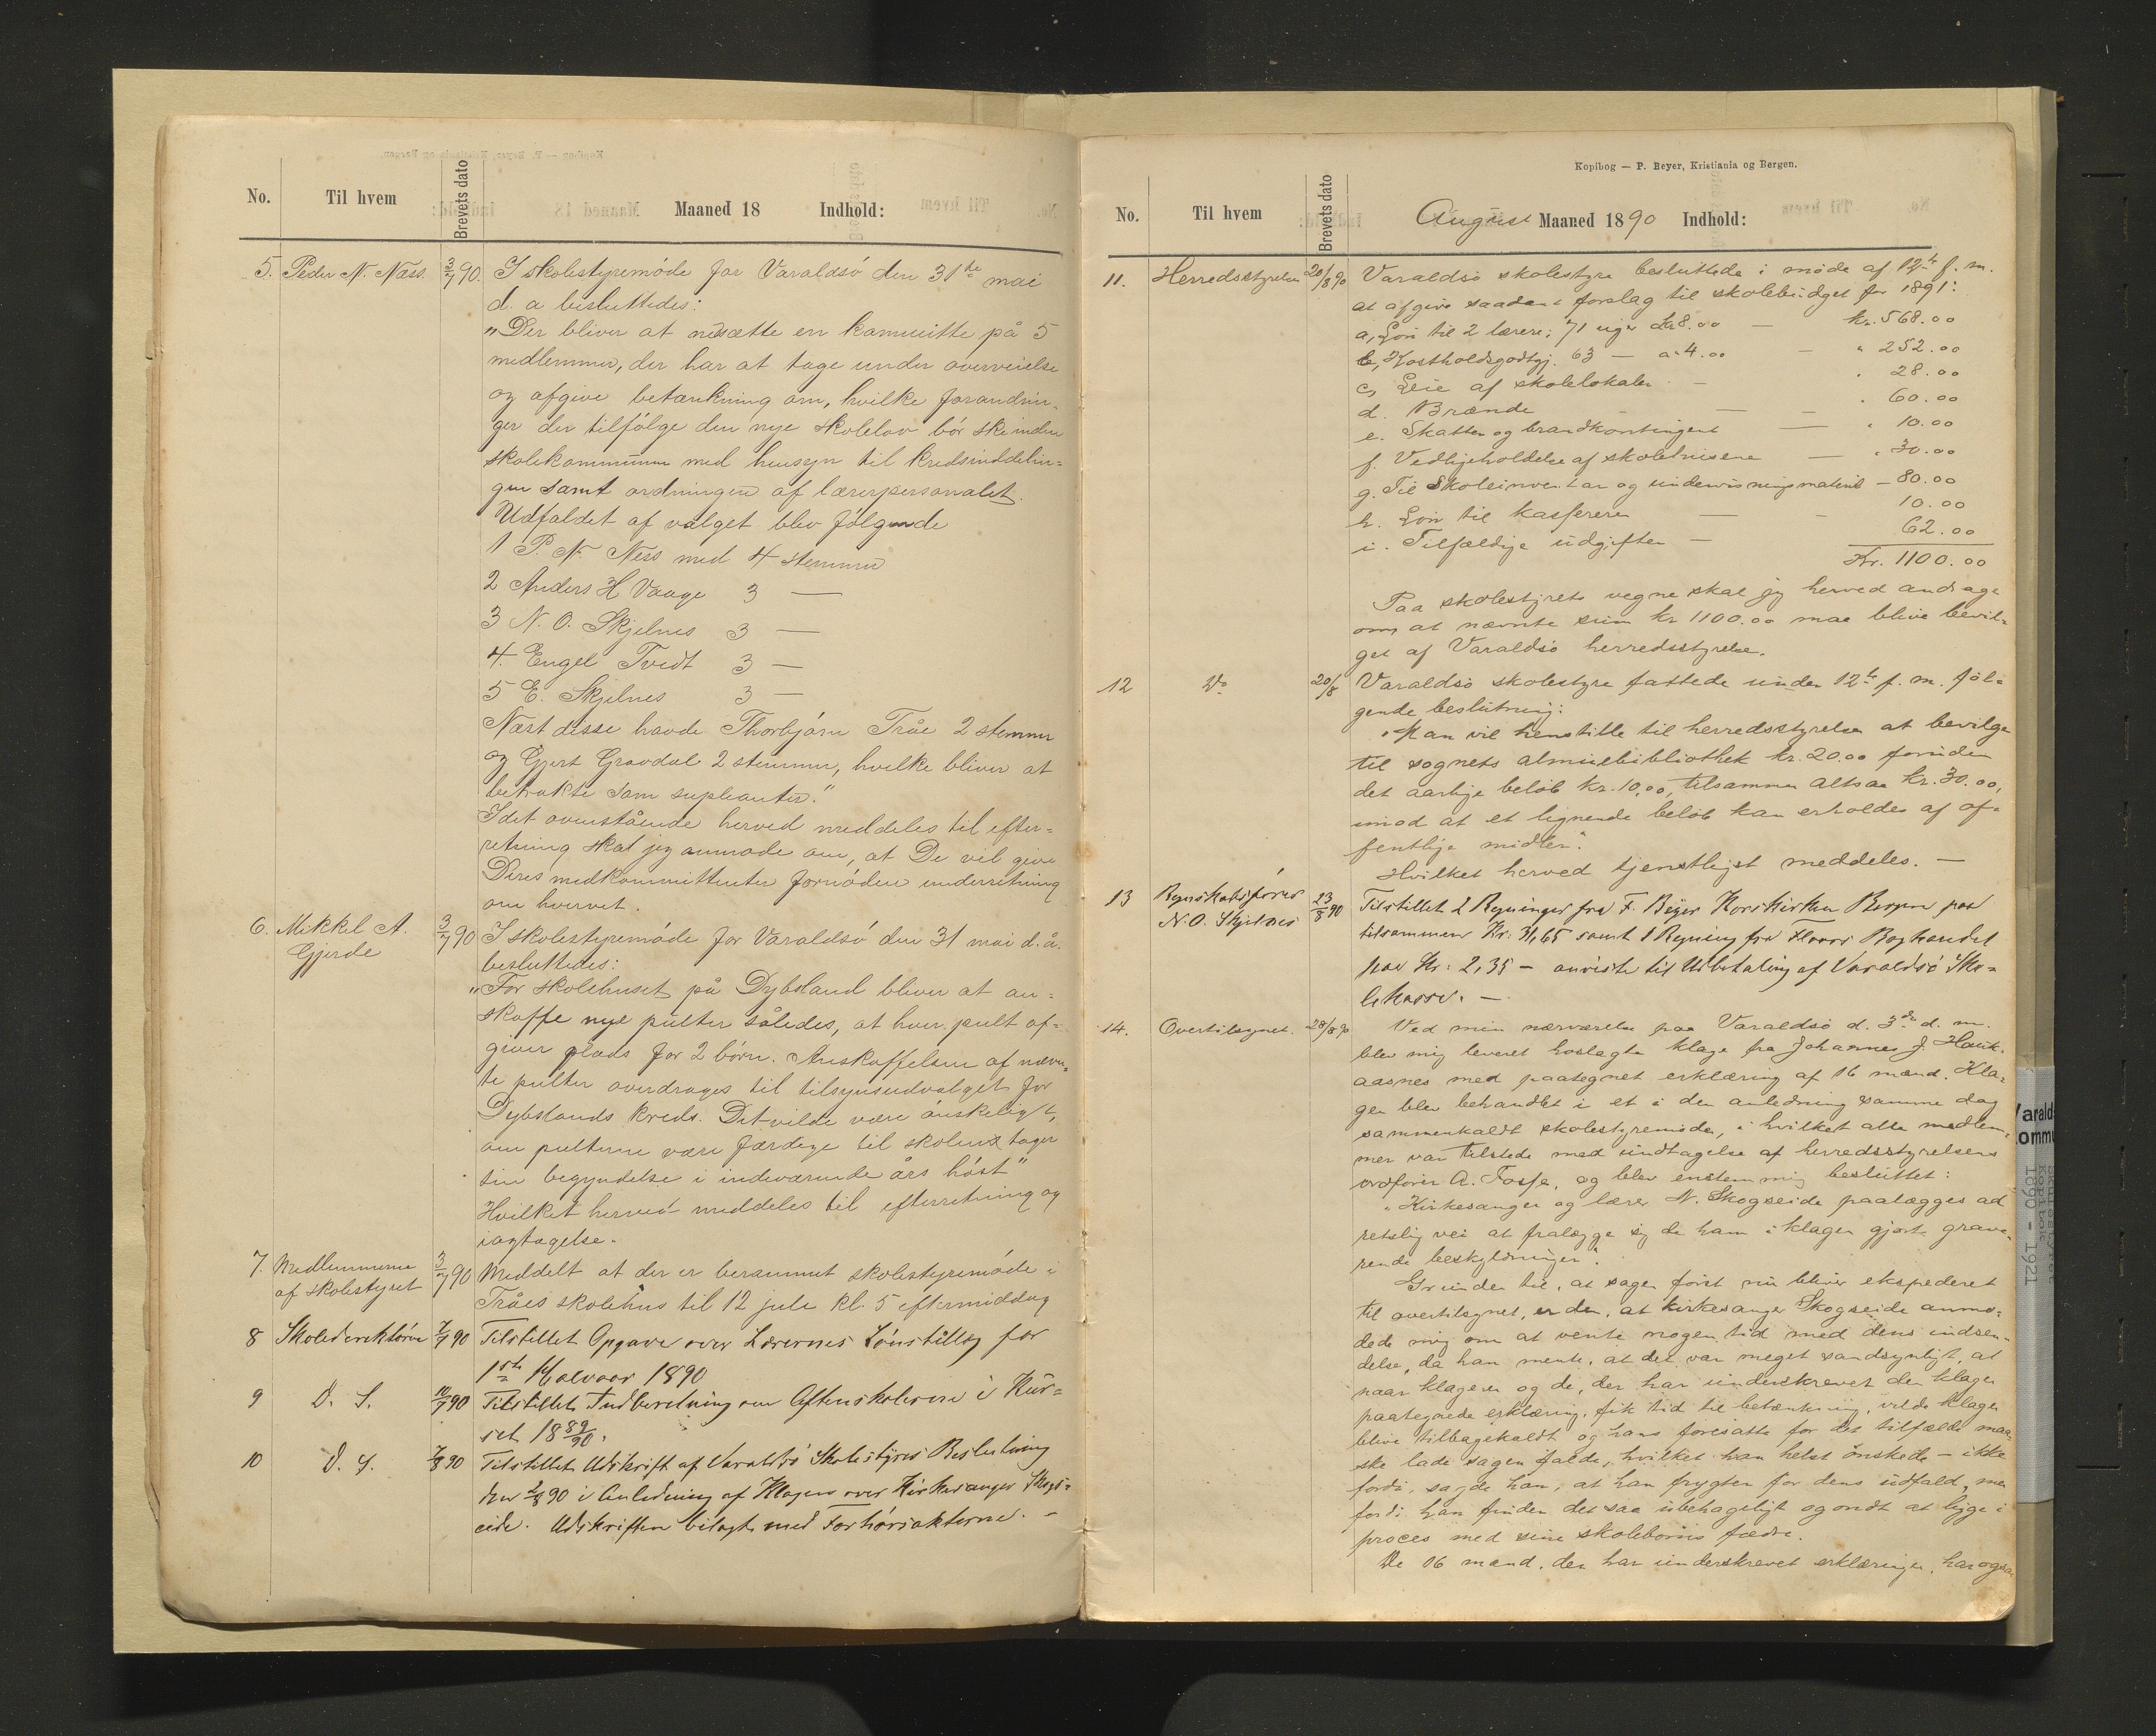 Kopibog — P. Beyer, Kristiania og Bergen.
No. Til hvem Brevets dato Maaned 18 Indhold:
5. Peder N. Næss. 3/7 90. I skolestyremöde for Varaldsö den 31te mai
d. a besluttedes:
"Der bliver at nedsætte en kommitte på 5
medlemmer, der har at tage under overveielse
og afgive betænkning om, hvilke forandrin-
ger der tilfölge den nye skolelov bör ske inden
skolekommunen med hensyn til kredsinddelin=
gen samt ordningen af lærerpersonalet.
Udfaldet af valget blev følgende
1 P. N. Ness med 4 stemmer
2 Anders H Vaage 3 —
3 N. O. Skjelnes 3 —
4. Engel Tvedt 3 —
5 E. Skjelnes 3 —
Næst disse havde Thorbjörn Tråe 2 stemmer
og Gjert Gravdal 2 stemmer, hvilke bliver at
betrakte som supleanter."
Idet ovenstående herved meddeles til efter=
retning skal jeg anmode om, at De vil give
Deres medkommitteer fornöden underretning
om hvervet.
6. Mikkel A. Gjerde 3/7 90 I skolestyremöde for Varaldsö den 31 mai d. å.
besluttedes:
"For skolehuset på Dybsland bliver at an=
skaffe nye pulter således, at hver pult af=
giver plads for 2 börn. Anskaffelsen af nævn=
te pulter overdrages til tilsynsudvalget for
Dybslands kreds. Det vilde være önskeligt,
om pulterne være færdige til skolen tager
sin begyndelse i indeværende års höst"
Hvilket herved meddeles til efterretning og
iagtagelse.
7. Medlemmerne af skolestyret 3/7 90 Meddelt at der er berammet skolestyremöde i
Tråes skolehus til 12 jule kl. 5 eftermiddag
8 Skoledirektören 7/7 90 Tilstillet Opgave over Lærernes Lönstillæg for
1ste Halvaar 1890
9 D. S. 10/7 90 Tilstillet Indberetning om Aftenskolerne i Kur=
set 1889/90.
10 D. S. 7/8 90 Tilstillet Udskrift af Varaldsö Skolestyres Beslutning
den 3/8 90 i Anledning af Klagen over Kirkesanger Skogs=
eide. Udskriften bilagt med Forhörsakterne. —
Kopibog — P. Beyer, Kristiania og Bergen.
No. Til hvem Brevets dato August Maaned 1890 Indhold:
11. Herredsstyrelsen 20/8 90 Varaldsö skolestyre besluttede i möde af 12te f. m.
at afgive saadant forslag til skolebudget for 1891:
a, Lön til 2 lærere; 71 uger à 8.00 — kr. 568.00
b, Kostholdsgodtgj. 63 — a 4.00 — " 252.00
c, Leie af skolelokaler — " 28.00
d. Brænde — — " 60.00
e. Skatter og brandkontingent — " 10.00
f. Vedligeholdelse af skolehusene — " 30.00
g. Til Skoleinventar og undervisningsmateriel — 80.00
h. Lön til kassereren — - 10.00
i. Tilfældige udgifter — 62.00
Kr. 1100.00
Paa skolestyrets vegne skal jeg herved andrage
om, at nævnte sum kr 1100.00 maa blive bevil=
get af Varaldsö herredsstyrelse.
12 Do 20/8 Varaldsö skolestyre fattede under 12te f. m. föl=
gende beslutning:
"Man vil henstille til herredsstyrelsen at bevilge
til sognets almuebibliothek kr. 20.00 foruden
det aarlige belöb kr. 10,00, tilsammen altsaa kr. 30.00,
imod at et lignende belöb kan erholdes af of=
fentlige midler."
Hvilket herved tjenstligst meddeles. —
13 Regnskabsförer N. O. Skjelnes 23/8 90 Tilstillet 2 Regninger fra F. Beyer Korskirken Bergen paa
tilsammen Kr. 31,65 samt 1 Regning fra Boghandel
paa Kr: 2,35 — anviste til Udbetaling af Varaldsö Sko=
lekasse. —
14. Overtilsynet. 28/8 90 Ved min nærværelse paa Varaldsö d. 3die d. m.
blev mig leveret hoslagte klage fra Johannes J. Hauk-
aasnes med paategnet erklæring af 16 mænd. Kla-
gen blev behandlet i et i den anledning samme dag
sammenkaldt skolestyremöde, i hvilket alle medlem-
mer var tilstede med undtagelse af herredsstyrelsens
ordförer A. Fosse, og blev enstemmig besluttet:
"Kirkesanger og lærer N. Skogseide paalægges ad
retslig vei at fralægge sig de ham i klagen gjorte grave-
rende beskyldninger".
Grunden til, at sagen först nu bliver ekspederet
til overtilsynet, er den, at kirkesanger Skogseide anmo-
dede mig om at vente nogen tid med dens indsen-
delse, da han mente, at det var meget sandsynligt, at
naar klageren og de, der har underskrevet den klagen
paategnede erklæring, fik tid til betænkning, vilde klagen
blive tilbagekaldt og hans foresatte for det tilfælde maa-
ske lade sagen falde, hvilket han helst önskede — ikke
fordi, sagde han, at han frygter for dens udfald, men
fordi han finder det saa ubehageligt og ondt at ligge i
proces med sine skolebörns fædre.
De 16 mænd, der har underskrevet erklæringen, har ogsaa
Varald
ommu
Kopibok
1890 - 1921